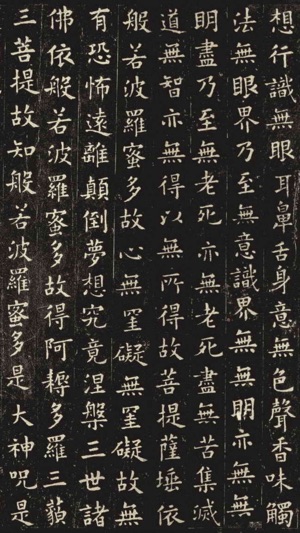 想行識無眼耳鼻舌身意無色聲香味觸
法無眼界乃至無意識界無無明亦無無
明盡乃至無老死亦無老死盡無苦集滅
道無智亦無得以無所得故菩提薩埵依
般若波羅蜜多故心無罣礙無罣礙故無
有恐怖遠離顛倒夢想究竟涅槃三世諸
佛依般若波羅蜜多故得阿耨多羅三藐
三菩提故知般若波羅蜜多是大神呪是